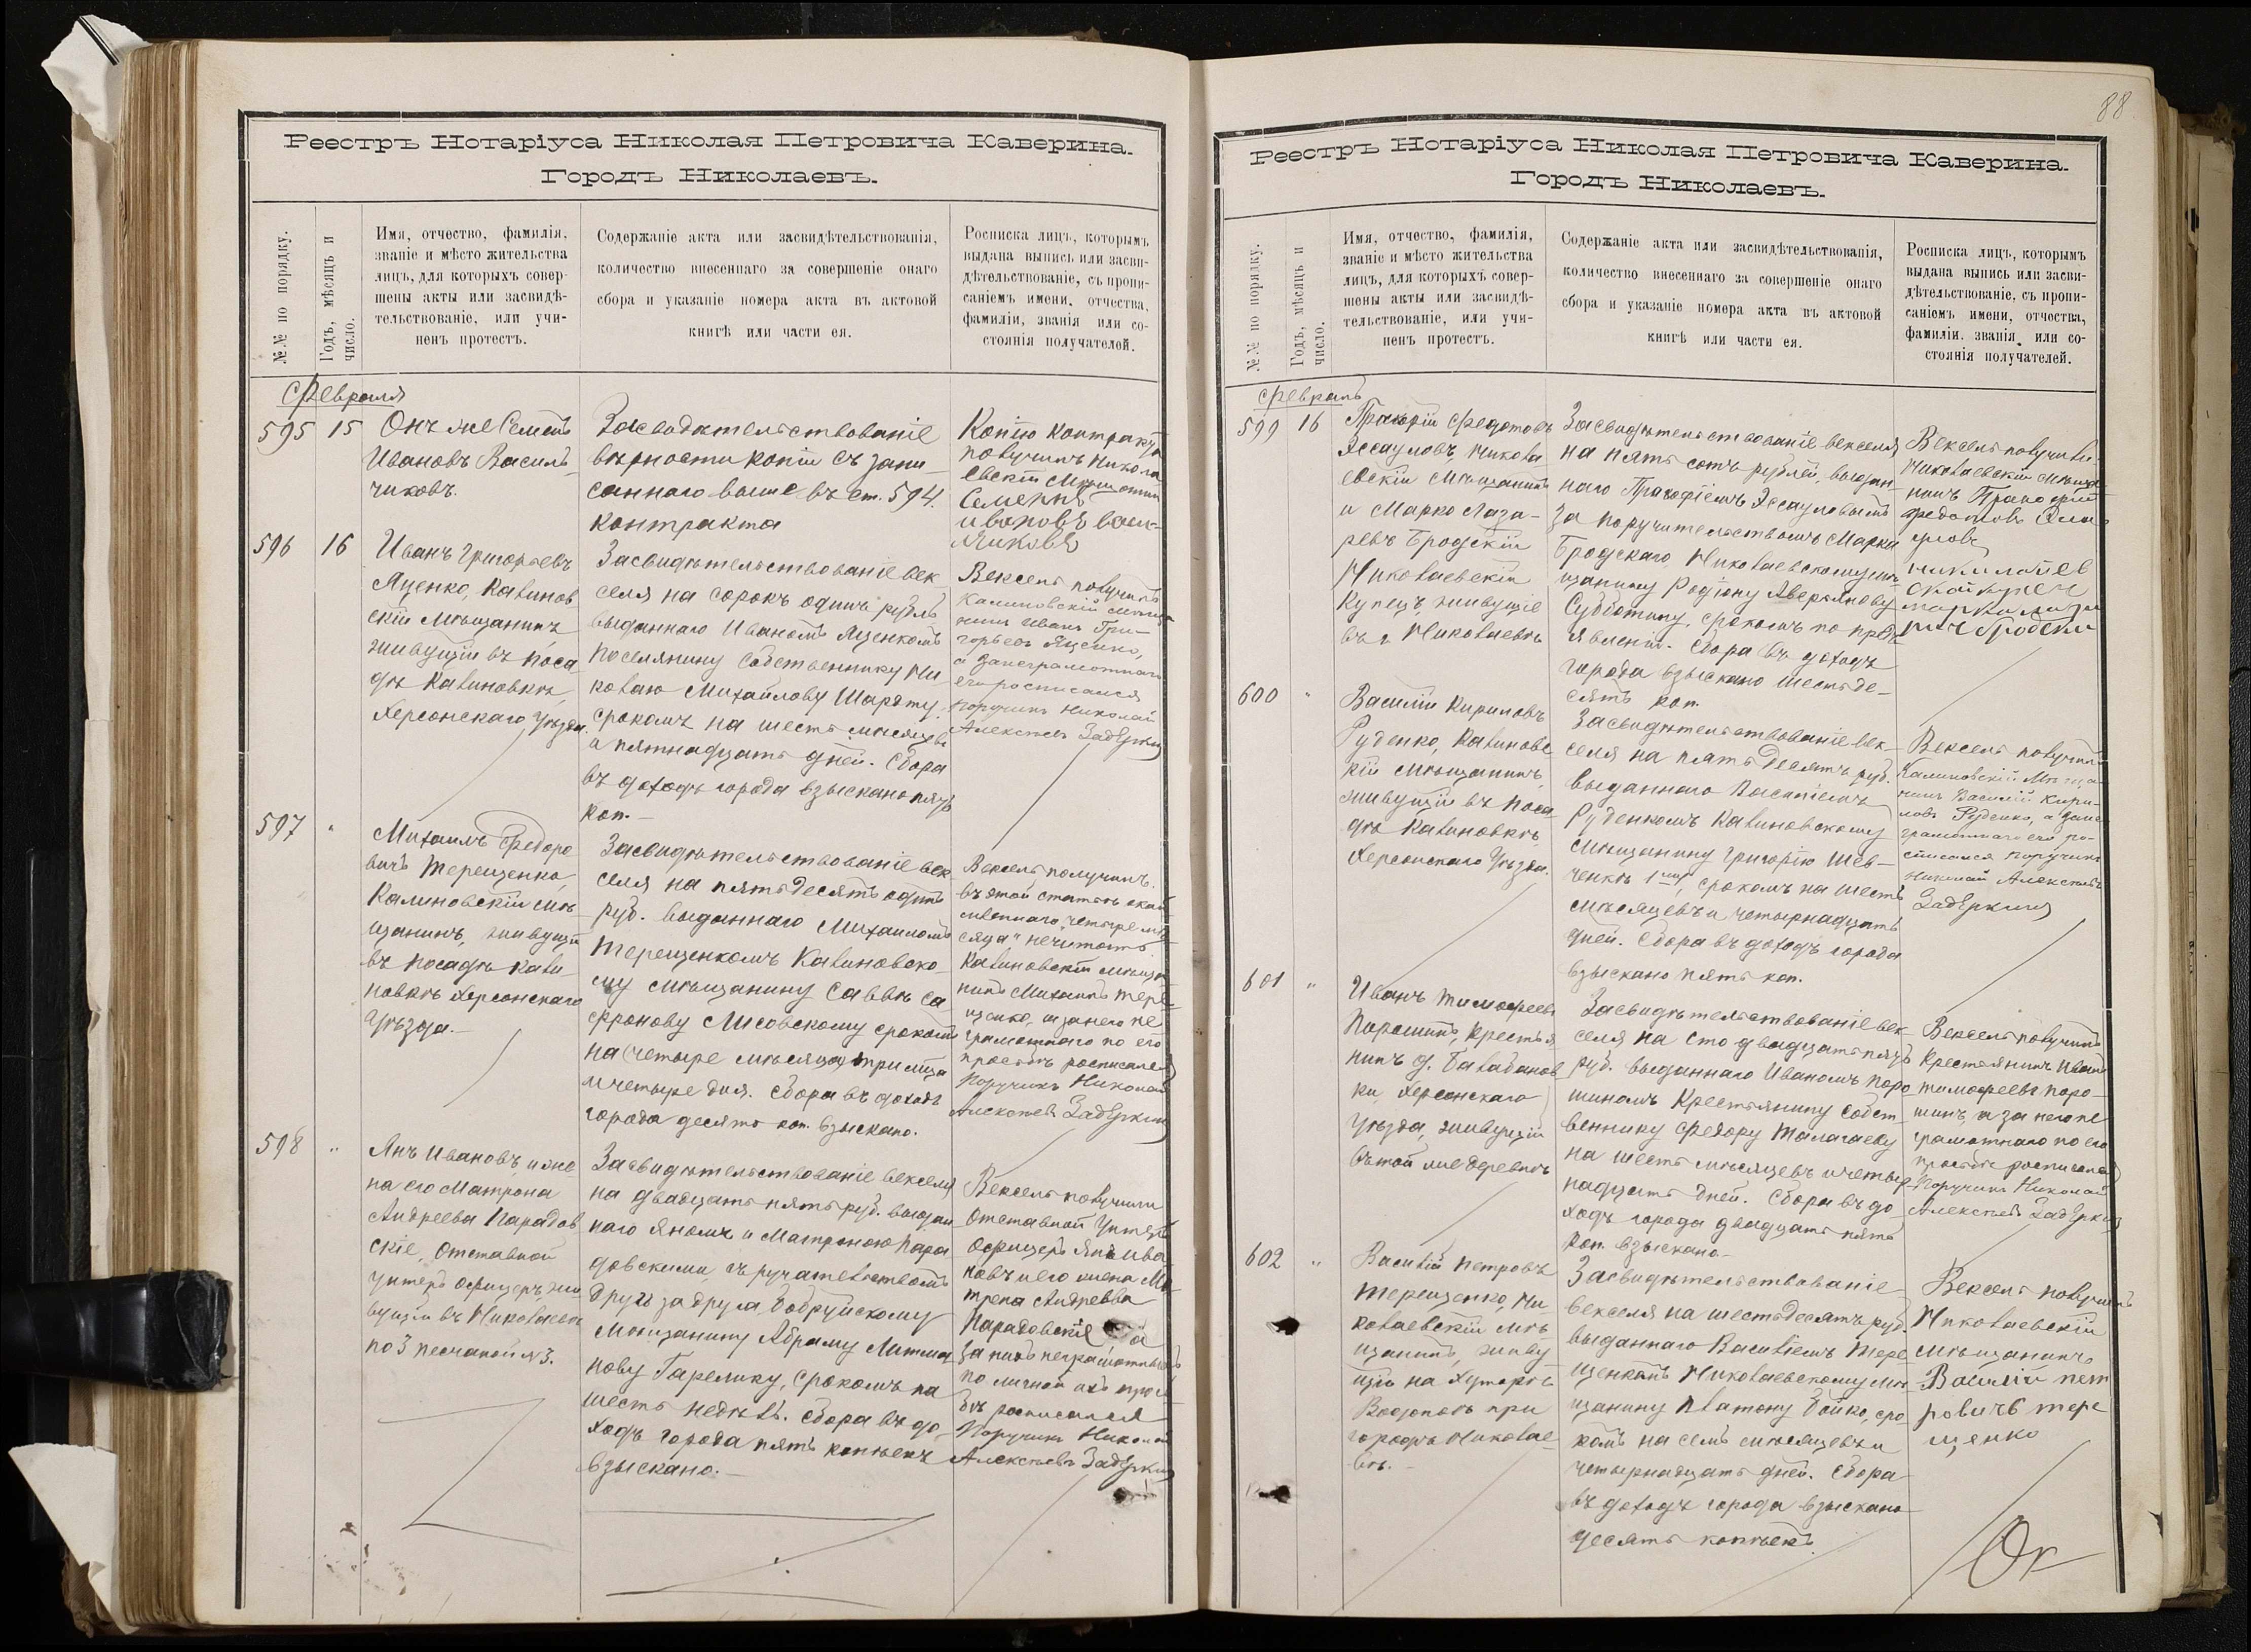 Реестръ Нотаріуса Николая Петровича Каверина.
Городъ Николаевъ.
№№ по порядку.
Годъ, мѣсяцъ и
число.
Имя, отчество, фамилія,
званіе и мѣсто жительства
лицъ, для которыхъ совер-
шены акты или засвидѣ-
тельствованіе, или учи-
ненъ протестъ.
Содержаніе акта или засвидѣтельствованія,
количество внесеннаго за совершеніе онаго
сбора и указаніе номера акта въ актовой
книгѣ или части ея.
Росписка лицъ, которымъ
выдана выпись или засви-
дѣтельствованіе, съ пропи-
саніемъ имени, отчества,
фамиліи, званія или со-
стоянія получателей.
Февраля
595 15
Онъ же Семенъ
Ивановъ Василь-
чиковъ.
Засвидѣтельствованіе
вѣрности копіи съ запи-
саннаго выше въ ст. 594.
контракта
Копію контракта
получилъ Никола
евскій Мѣщанинъ
Семенъ
Ивановъ Васи-
льчиковъ
596 16
Иванъ Григорьевъ
Яценко, Калинов
скій мѣщанинъ
живущій въ поса
дѣ Калиновкѣ,
Херсонскаго уѣзда.
Засвидѣтельствованіе век
селя на сорокъ одинъ рубль
выданнаго Иваномъ Яценкомъ
поселянину собственнику Ни
колаю Михайлову Шаряту,
срокомъ на шесть мѣсяцевъ
и пятнадцать дней. Сбора
въ доходъ города взыскано пять
коп.—
Вексель получилъ
Калиновскій мѣща
нинъ Иванъ Гри-
горьевъ Яценко,
а за неграмотнаго
его росписался
Поручикъ Николай
Алексѣевъ Задеркинъ
597 "
Михаилъ Федоро
вичъ Терещенко,
Калиновскій мѣ
щанинъ, живущій
въ посадѣ Кали
новкѣ Херсонскаго
уѣзда.—
Засвидѣтельствованіе век
селя на пятьдесятъ одинъ
руб. выданнаго Михаиломъ
Терещенкомъ Калиновско-
му мѣщанину Саввѣ Са
фронову Лисовскому срокомъ
на четыре мѣсяца три мца
и четыре дня. Сбора въ доходъ
города десять коп. взыскано.
Вексель получилъ.
въ этой статьѣ
"четыре мѣ
сяца" не читать
Калиновскій мѣща
нинъ Михаилъ Тере
щенко, а за него не
грамотнаго по его
просьбѣ росписался
Поручикъ Николай
Алексѣевъ Задеркинъ
598 "
Янъ Ивановъ и же
на его Матрона
Андреева Парадов
скіе, Отставной
унтеръ офицеръ, жи
вущій въ Николаевѣ
по 3 песчаной № 3.
Засвидѣтельствованіе векселя
на двадцать пять руб. выдан
наго Яномъ и Матроною Пара
довскими, съ ручательствомъ
другъ за друга, Бобруйскому
мѣщанину Абраму Литма
нову Гарелику, срокомъ на
шесть недѣль. Сбора въ до-
ходъ города пять копѣекъ
взыскано.—
Вексель получили
Отставной Унтеръ
Офицеръ Янъ Ива
новъ и его жена Ма
трена Андреева
Парадовскіе а
за нихъ неграмотныхъ
по личной ихъ прось
бѣ росписался
Поручикъ Николай
Алексѣевъ Задеркинъ
88
Реестръ Нотаріуса Николая Петровича Каверина.
Городъ Николаевъ.
№№ по порядку.
Годъ, мѣсяцъ и
число.
Имя, отчество, фамилія,
званіе и мѣсто жительства
лицъ, для которыхъ совер-
шены акты или засвидѣ-
тельствованіе, или учи-
ненъ протестъ.
Содержаніе акта или засвидѣтельствованія,
количество внесеннаго за совершеніе онаго
сбора и указаніе номера акта въ актовой
книгѣ или части ея.
Росписка лицъ, которымъ
выдана выпись или засви-
дѣтельствованіе, съ пропи-
саніемъ имени, отчества,
фамиліи, званія или со-
стоянія получателей.
Февраль
599 16
Прокофій Федотовъ
Эссауловъ, Никола
евскій мѣщанинъ
и Марко Лаза-
ревъ Бродскій
Николаевскій
купецъ, живущіе
въ г. Николаевѣ
Засвидѣтельствованіе векселя
на пять сотъ рублей, выдан-
наго Прокофіемъ Эссауловымъ
за поручительствомъ Марка
Бродскаго, Николаевскому мѣ
щанину Родіону Аверьянову
Субботину, срокомъ по предъ
явленіи. Сбора въ доходъ
города взыскано шестьде-
сятъ коп.
Вексель получили
Николаевскій мѣща
нинъ Прокофій
Федотовъ
600 "
Василій Кириловъ
Руденко, Калиновс
кій мѣщанинъ,
живущій въ поса
дѣ Калиновкѣ,
Херсонскаго уѣзда.
Засвидѣтельствованіе век-
селя на пятьдесятъ руб.
выданнаго Василіемъ
Руденкомъ Калиновскому
мѣщанину Григорію Шев-
ченкѣ 1му, срокомъ на шесть
мѣсяцевъ и четырнадцать
дней. Сбора въ доходъ города
взыскано пять коп.
Вексель получилъ
Калиновскій Мѣща
нинъ Василій Кири-
ловъ Руденко, а за не
грамотнаго его ро-
списался поручикъ
Николай Алексѣевъ
Задеркинъ
601 "
Иванъ Тимофеевъ
Порошинъ, крестья
нинъ д. Балабанов
ки, Херсонскаго
уѣзда, живущій
въ той же деревнѣ
Засвидѣтельствованіе век
селя на сто двадцать пять
руб. выданнаго Иваномъ Поро
шинымъ Крестьянину собст-
веннику Федору Талагаеву
на шесть мѣсяцевъ и четыр
надцать дней. Сбора въ до
ходъ города двадцать пять
коп. взыскано.—
Вексель получилъ
Крестьянинъ Иванъ
Тимофеевъ Поро-
шинъ, а за него не
грамотнаго по его
просьбѣ росписался
Поручикъ Николай
Алексѣевъ Задеркинъ
602 "
Василій Петровъ
Терещенко, Ни
колаевскій мѣ-
щанинъ, живу
щій на хуторѣ
Водопой при
городѣ Николае-
вѣ.—
Засвидѣтельствованіе
векселя на шестьдесятъ руб.
выданнаго Василіемъ Тере
щенкомъ Николаевскому мѣ
щанину Платону Бойко, сро
комъ на семь мѣсяцевъ и
четырнадцать дней. Сбора
въ доходъ города взыскано
десять копѣекъ.
Вексель получилъ
Николаевскій
мѣщанинъ
Василій пет
ровичъ тере
щенко